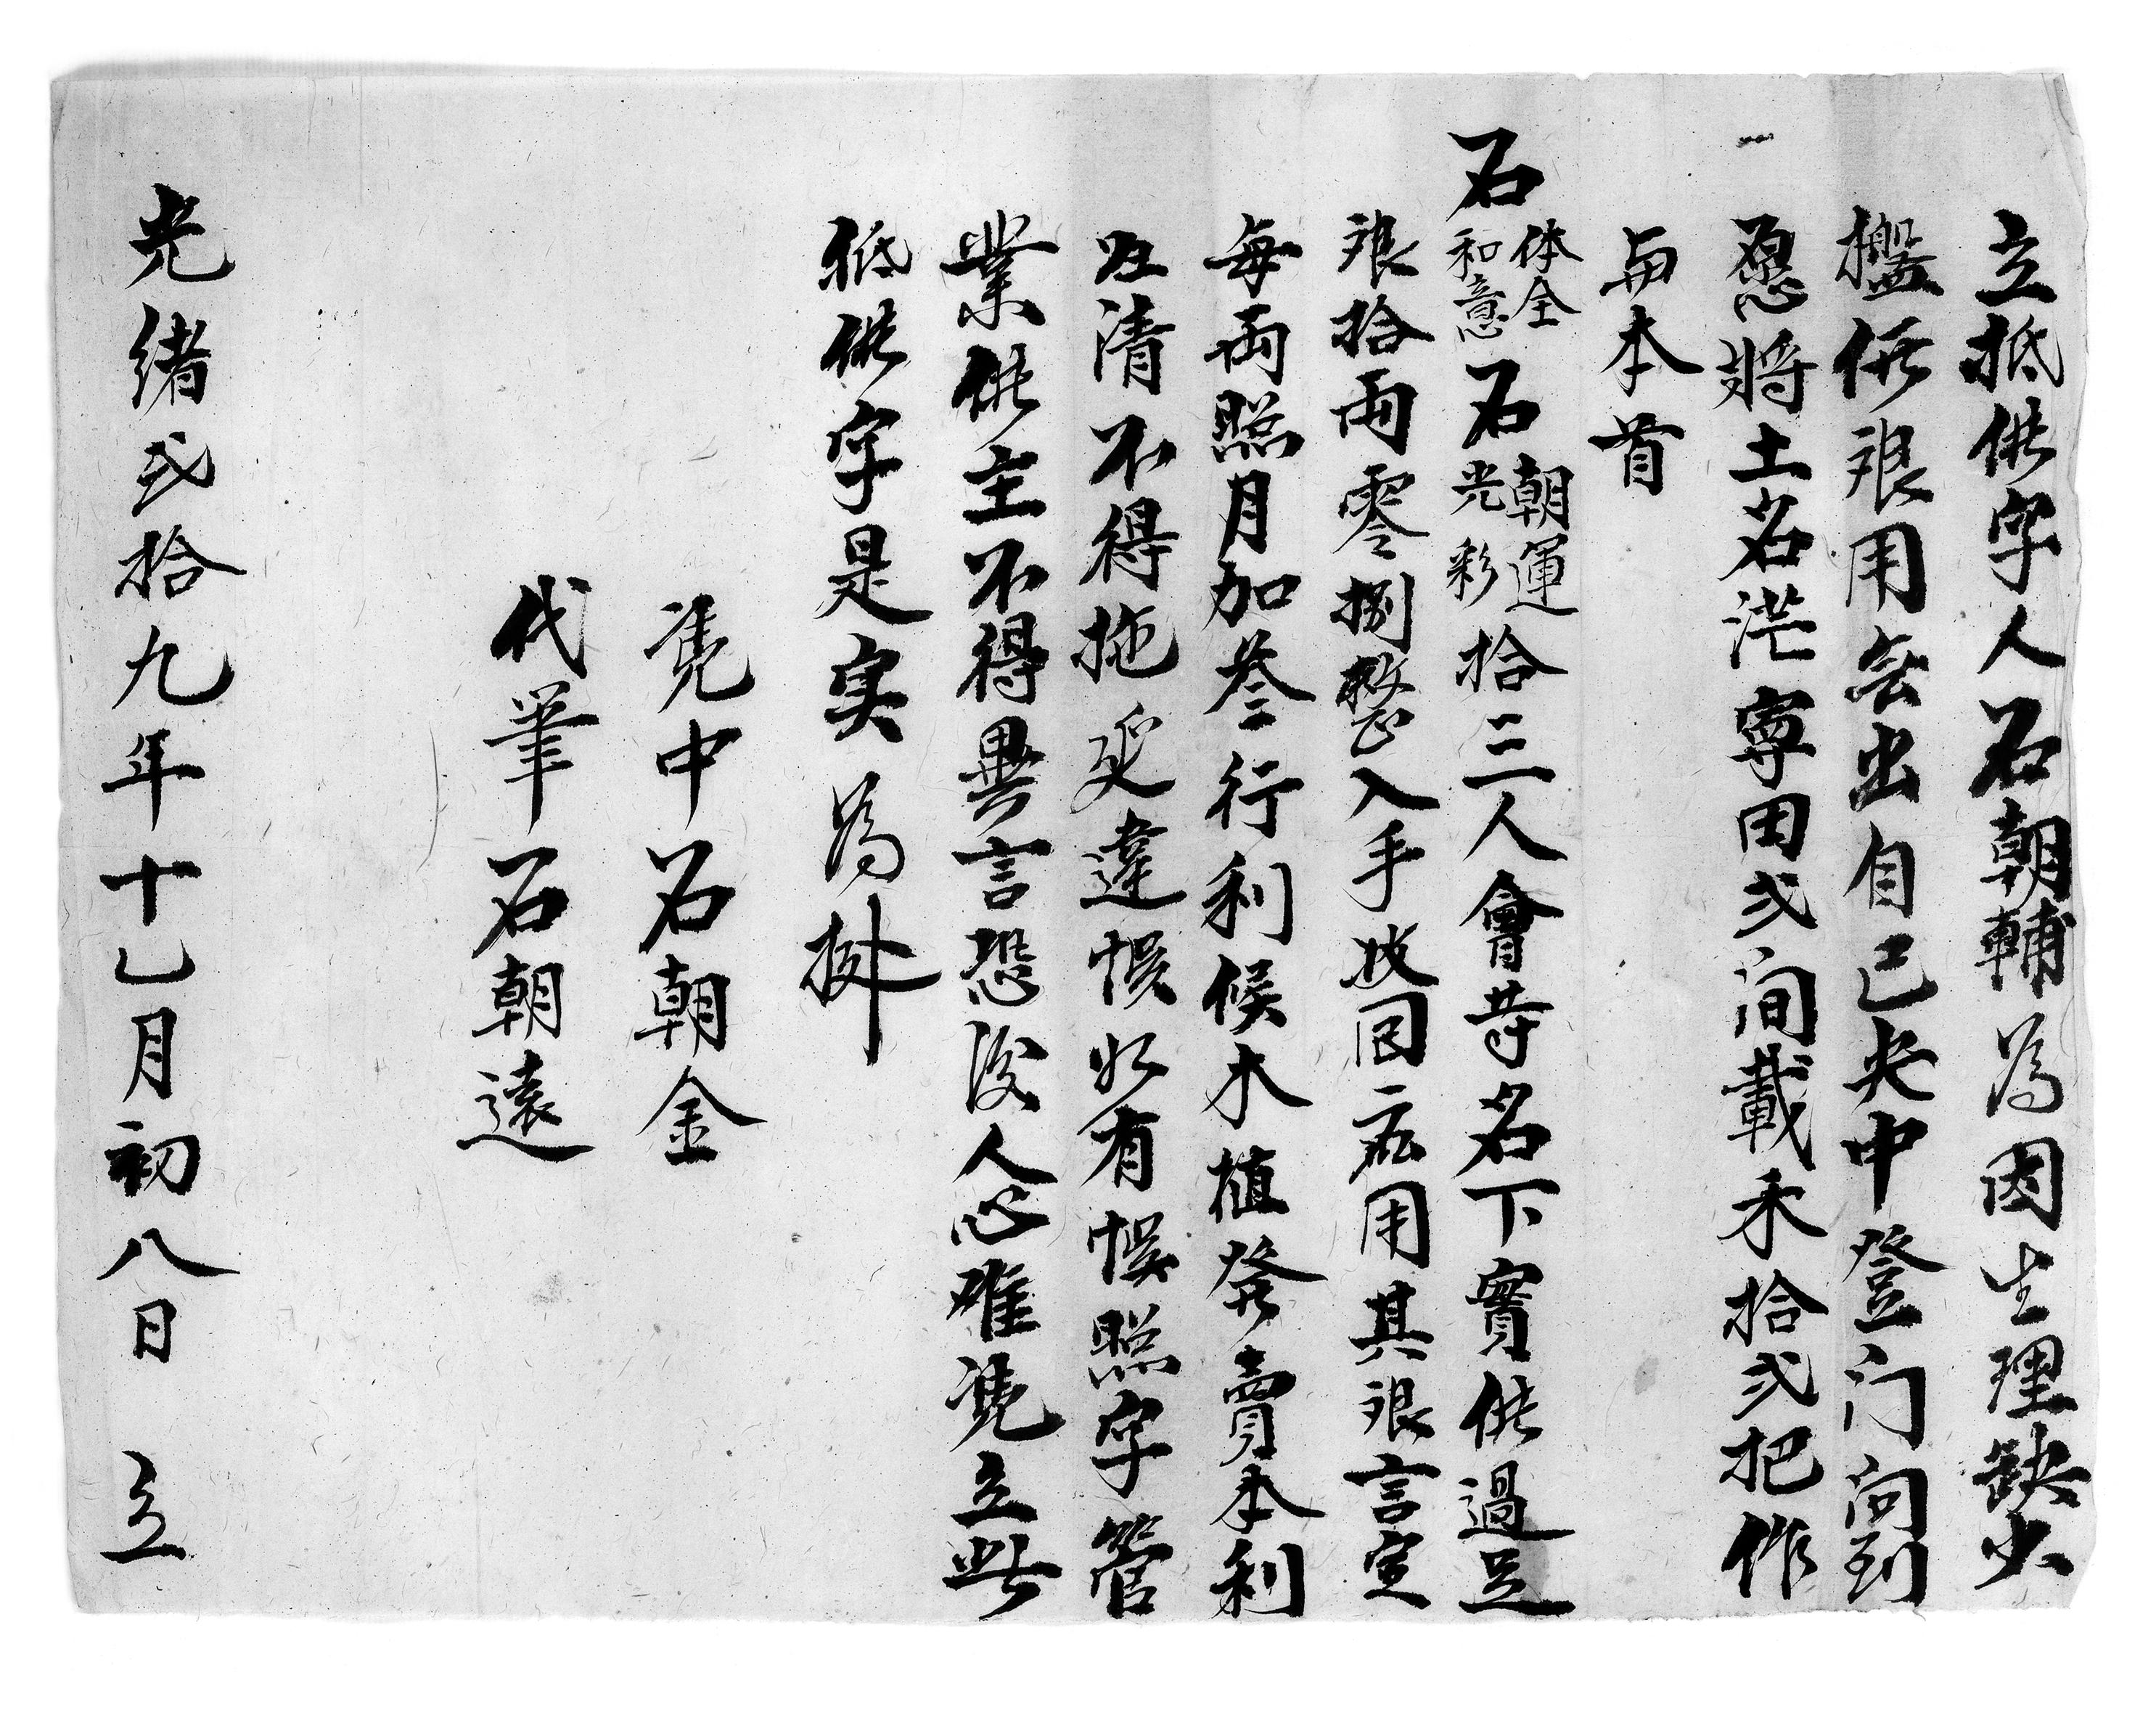 立抵借字人石朝輔為因生理缺少
用無出自己央中登门问到
愿將土名茫寧田弍间載禾拾弍把作
与本首
石体全和意石朝運光彩拾三人會等名下實借過足
銀拾両零捌整入手收回應用其銀言定
每両照月加叁行利候木植發賣本利
歸清不得拖延違悞如有悞照字管
業借主不得異言恐後人心难凭立此
抵借字是实為據
凭中石朝金
代筆石朝遠
光緒弍拾九年十乙月初八日 立